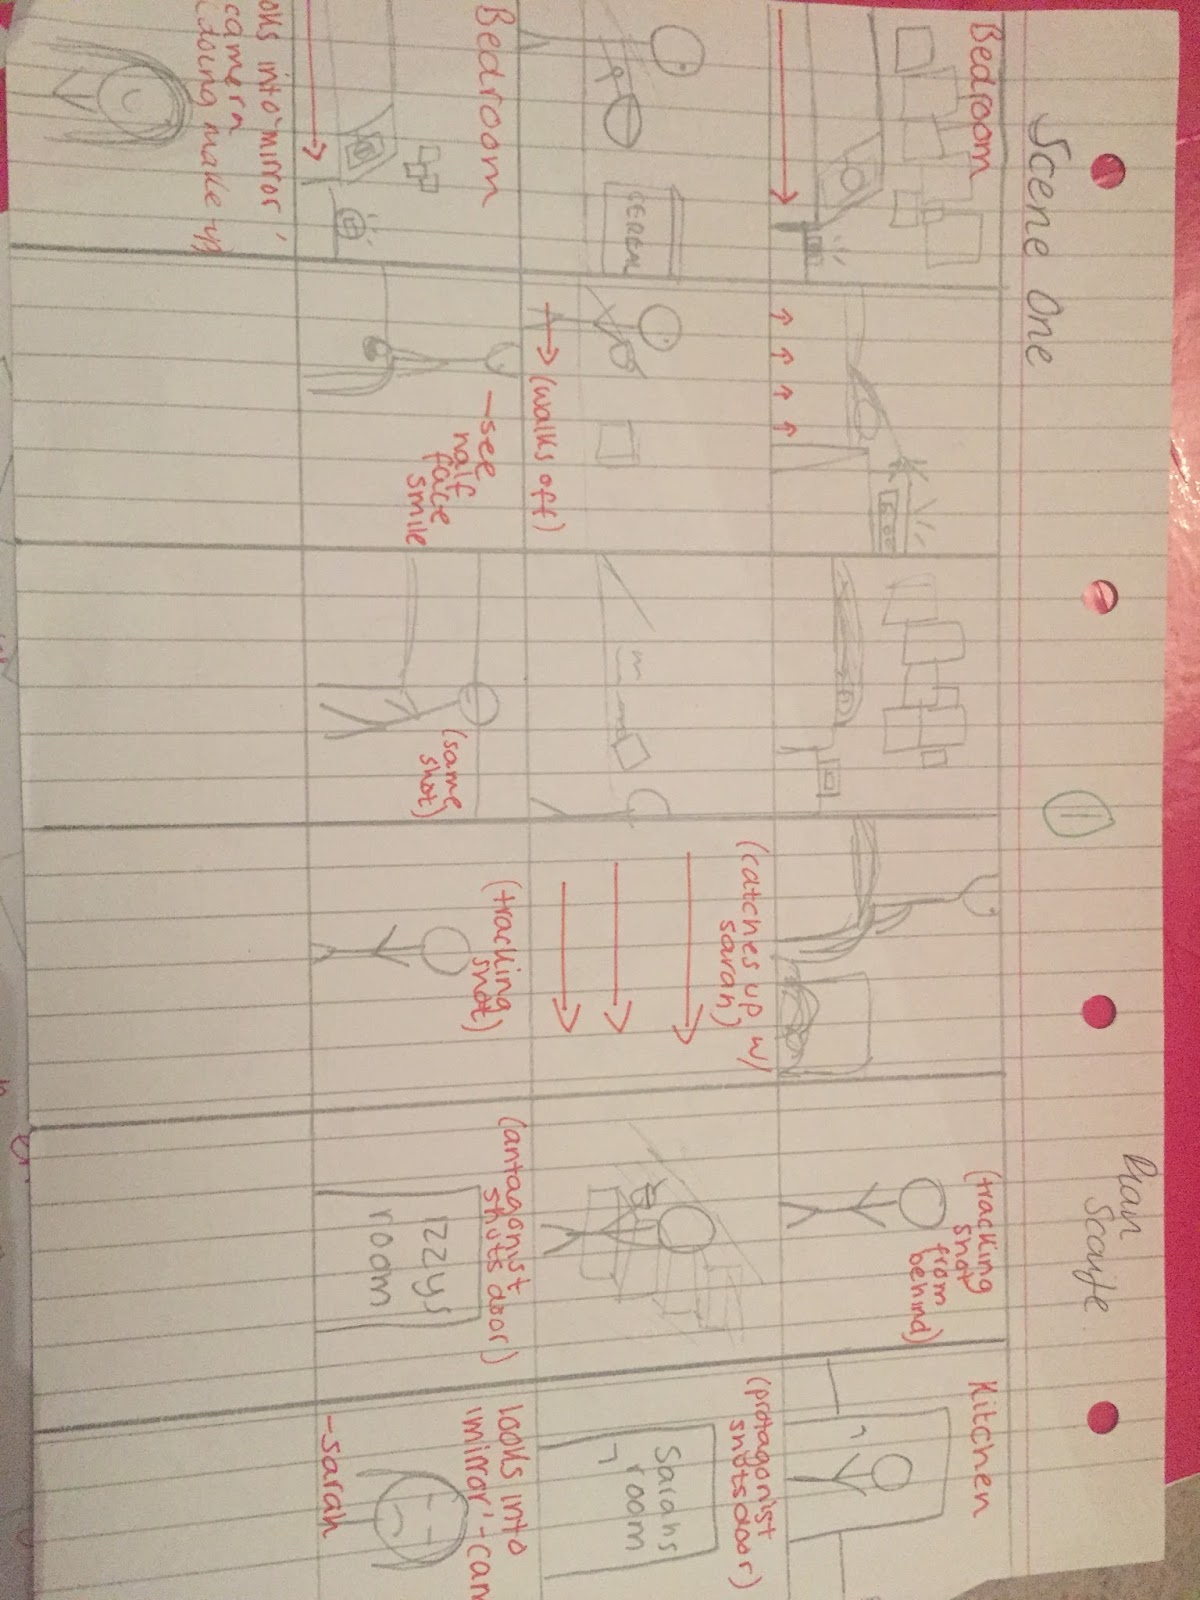 Scene One
Bedroom
(tracking
shot
from
behind)
Kitchen
CEREAL
(walks off)
(catches up w/
sarah)
(protagonist
shuts door)
Sarahs
room
Bedroom
-see
half
face
smile
(same
shot)
(tracking
shot)
(antagonist
shuts door)
Izzys
room
looks into
'mirror'-cam
-sarah
oks into 'mirror'
camera
(doing make-up)